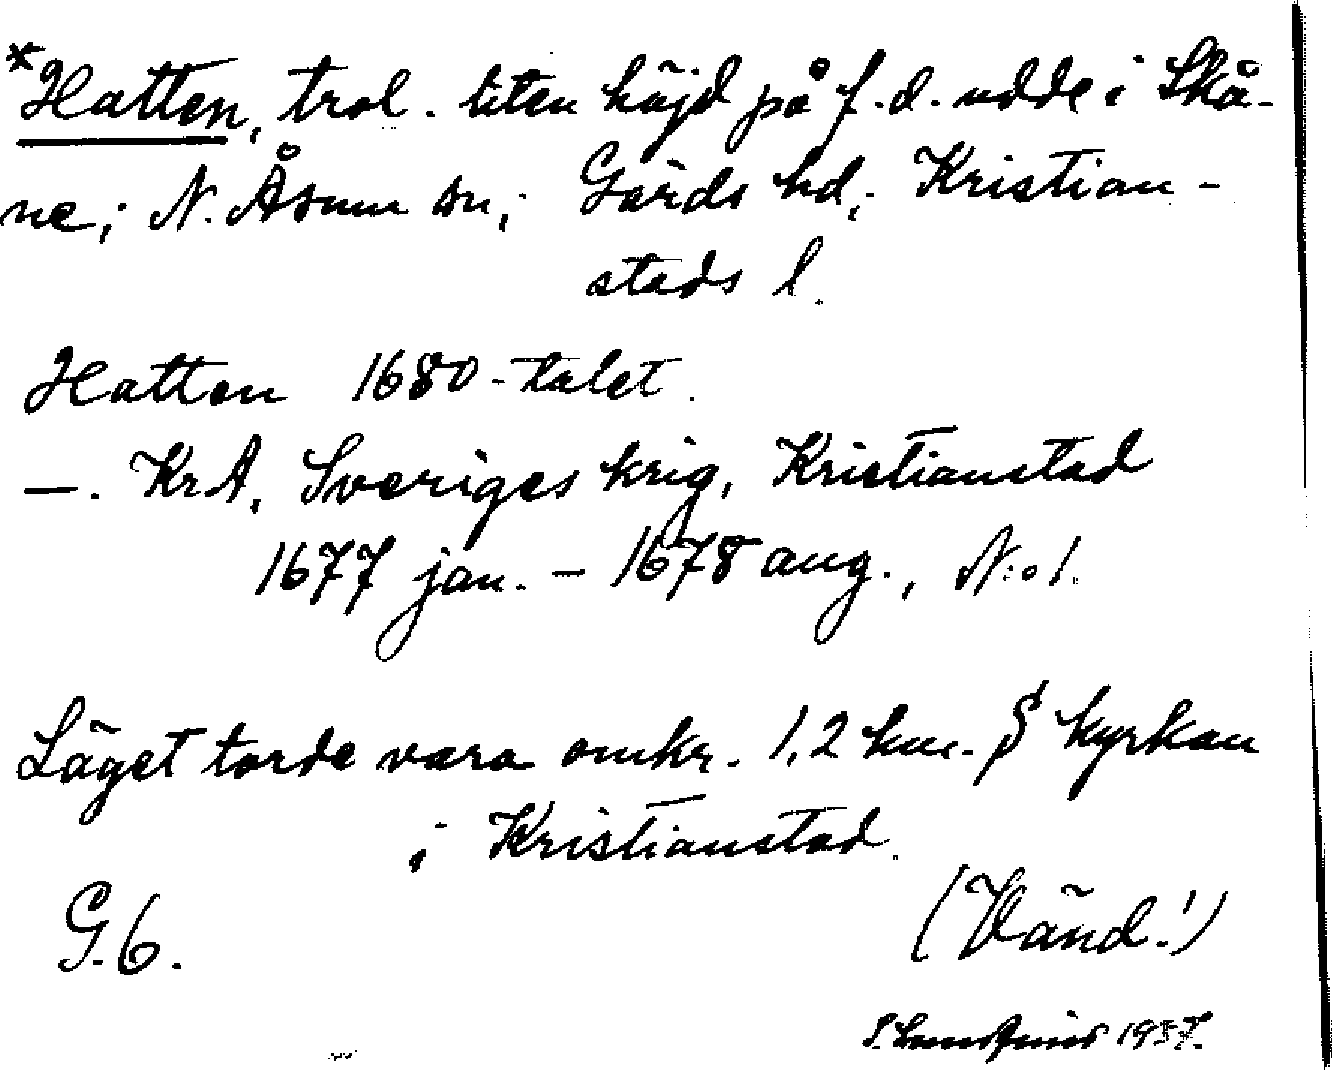 *Hatten, trol. liten höjd på f.d. udde i Skå-
ne; N. Åsum sn, Gärds hd, Kristian-
stads l.
Hatten 1680-talet.
—. KrA, Sveriges krig, Kristianstad
1677 jan. – 1678 aug., N:o 1.
Läget torde vara omkr. 1,2 km. S kyrkan
i Kristianstad.
G. 6.
(Vänd!)
1937.